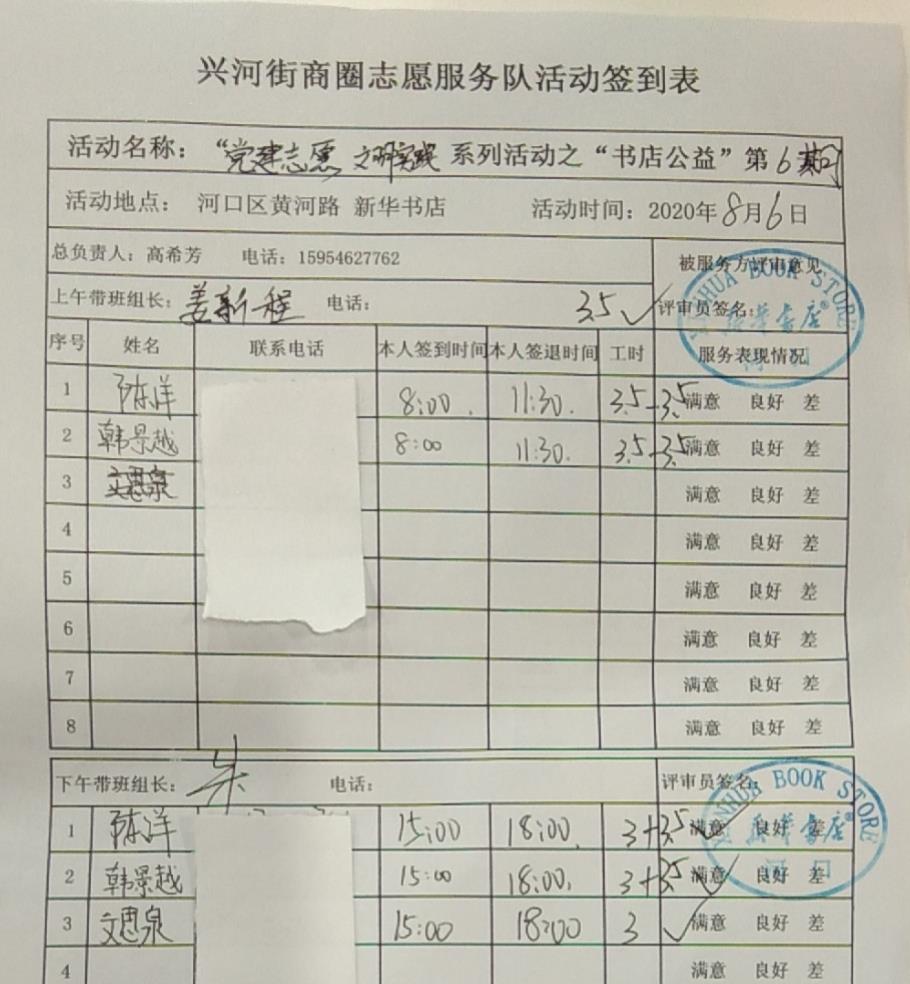 兴河街商圈志愿服务队活动签到表
活动名称："党建志愿 文明实践 系列活动之“书店公益”第6期
活动地点： 河口区黄河路 新华书店 活动时间：2020年8月6日
总负责人：高希芳 电话：15954627762 被服务方评审意见
上午带班组长：姜新程 电话： 3.5✓ 评审员签名：
XINHUA BOOK STORE
新华书店®
河口
序号 姓名 联系电话 本人签到时间 本人签退时间 工时 服务表现情况
1 陈洋 8:00. 11:30. 3.5-3.5 满意 良好 差
2 韩景越 8:00 11:30. 3.5-3.5 满意 良好 差
3 文思泉 满意 良好 差
4 满意 良好 差
5 满意 良好 差
6 满意 良好 差
7 满意 良好 差
8 满意 良好 差
下午带班组长： 电话： 评审员签名：
XINHUA BOOK STORE
新华书店®
河口
1 陈洋 15:00 18:00. 3+3.5 满意 良好 差
2 韩景越 15:00 18:00. 3+3.5 满意 良好 差
3 文思泉 15:00 18:00 3 ✓满意 良好 差
4 满意 良好 差